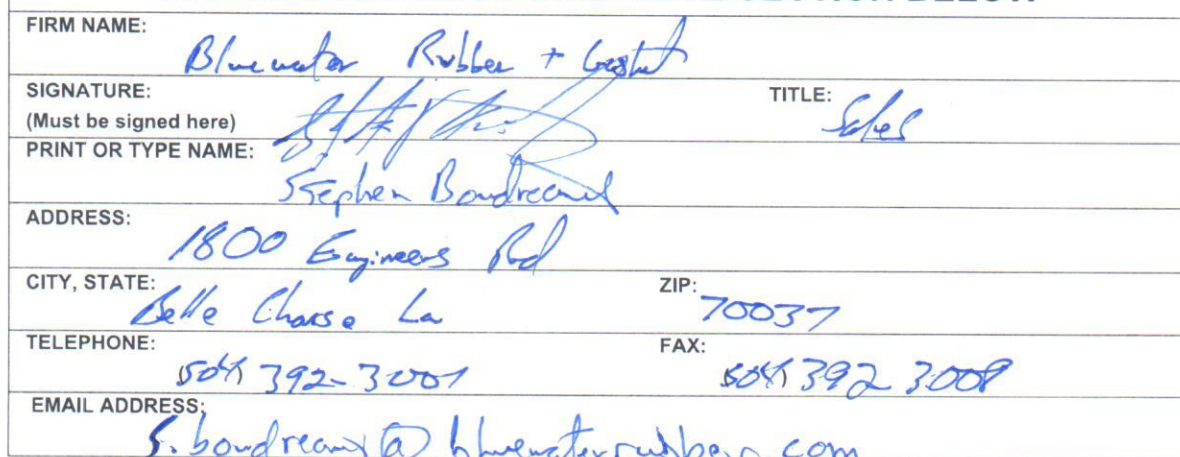 FIRM NAME:
Bluewater Rubber + Gasket
SIGNATURE: TITLE: Sales
(Must be signed here)
PRINT OR TYPE NAME:
Stephen Boudreaux
ADDRESS:
1800 Engineers Rd
CITY, STATE: ZIP:
Belle Chasse La 70037
TELEPHONE: FAX:
504) 392-3001 504) 392 3008
EMAIL ADDRESS:
s.boudreaux@bluewaterrubber.com